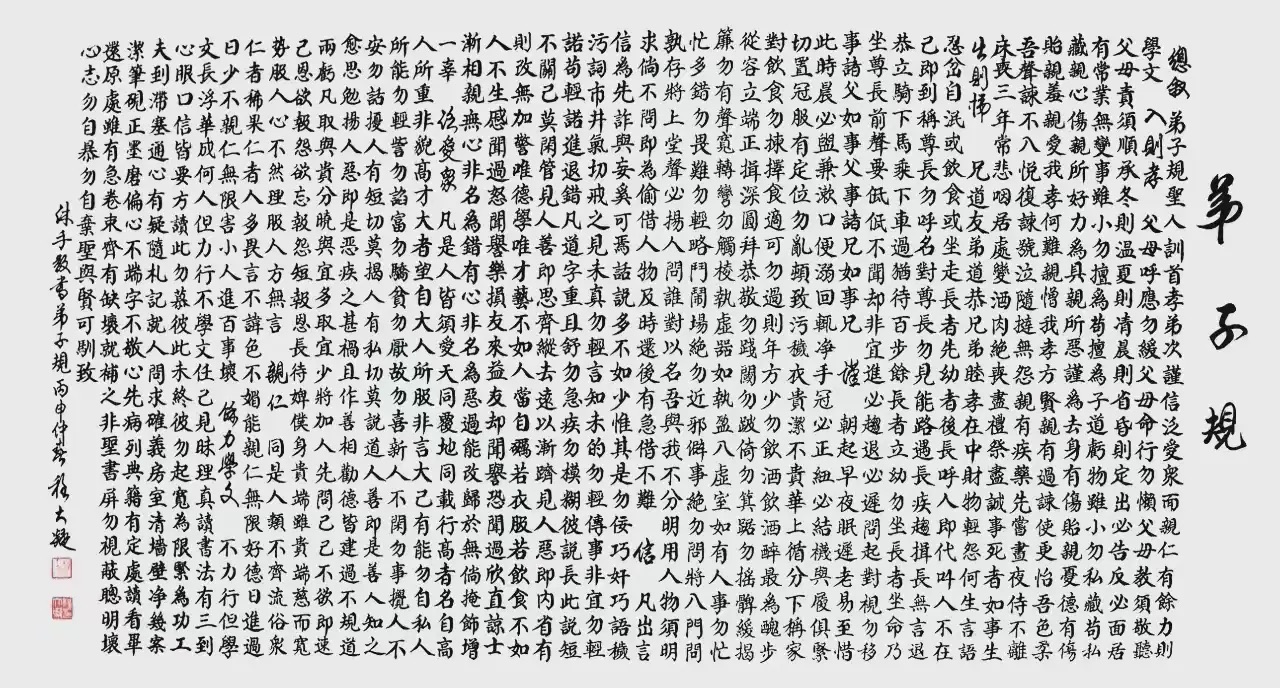 弟子規
總敘 弟子規聖人訓首孝弟次謹信泛愛衆而親仁有餘力則
學文 入則孝 父母呼應勿緩父母命行勿懶父母教須敬聽
父母責須順承冬則温夏則凊晨則省昏則定出必告反必面居
有常業無變事雖小勿擅為苟擅為子道虧物雖小勿私藏苟私
藏親心傷親所好力為具親所惡謹為去身有傷貽親憂德有傷
貽親羞親愛我孝何難親憎我孝方賢親有過諫使更怡吾色柔
吾聲諫不入悅復諫號泣隨撻無怨親有疾藥先嘗晝夜侍不離
床喪三年常悲咽居處變酒肉絕喪盡禮祭盡誠事死者如事生
出則悌 兄道友弟道恭兄弟睦孝在中財物輕怨何生言語
忍忿自泯或飲食或坐走長者先幼者後長呼人即代叫人不在
己即到稱尊長勿呼名對尊長勿見能路遇長疾趨揖長無言退
恭立騎下馬乘下車過猶待百步餘長者立幼勿坐長者坐命乃
坐尊長前聲要低低不聞却非宜進必趨退必遲問起對視勿移
事諸父如事父事諸兄如事兄 謹 朝起早夜眠遲老易至惜
此時晨必盥兼漱口便溺回輒净手冠必正紐必結襪與履俱緊
切置冠服有定位勿亂頓致污穢衣貴潔不貴華上循分下稱家
對飲食勿揀擇食適可勿過則年方少勿飲酒飲酒醉最為醜步
從容立端正揖深圓拜恭敬勿踐閾勿跛倚勿箕踞勿搖髀緩揭
簾勿有聲寬轉彎勿觸棱執虛器如執盈入虛室如有人事勿忙
忙多錯勿畏難勿輕略鬥鬧場絕勿近邪僻事絕勿問將入門問
孰存將上堂聲必揚人問誰對以名吾與我不分明用人物須明
求倘不問即為偷借人物及時還後有急借不難 信 凡出言
信為先詐與妄奚可焉話說多不如少惟其是勿佞巧奸巧語穢
污詞市井氣切戒之見未真勿輕言知未的勿輕傳事非宜勿輕
諾苟輕諾進退錯凡道字重且舒勿急疾勿模糊彼說長此說短
不關己莫閑管見人善即思齊縱去遠以漸躋見人惡即内省有
則改無加警唯德學唯才藝不如人當自礪若衣服若飲食不如
人不生慼聞過怒聞譽樂損友來益友却聞譽恐聞過欣直諒士
漸相親無心非名為錯有心非名為惡過能改歸於無倘掩飾增
一辜 泛愛衆 凡是人皆須愛天同覆地同載行高者名自高
人所重非貌高才大者望自大人所服非言大己有能勿自私人
所能勿輕訾勿諂富勿驕貧勿厭故勿喜新人不閑勿事攪人不
安勿話擾人有短切莫揭人有私切莫說道人善即是善人知之
愈思勉揚人惡即是惡疾之甚禍且作善相勸德皆建過不規道
兩虧凡取與貴分曉與宜多取宜少將加人先問己己不欲即速
己恩欲報怨欲忘報怨短報恩長待婢僕身貴端雖貴端慈而寬
勢服人心不然理服人方無言 親仁 同是人類不齊流俗衆
仁者稀果仁者人多畏言不諱色不媚能親仁無限好德日進過
日少不親仁無限害小人進百事壞 餘力學文 不力行但學
文長浮華成何人但力行不學文任己見昧理真讀書法有三到
心眼口信皆要方讀此勿慕彼此未終彼勿起寬為限緊為功工
夫到滯塞通心有疑隨札記就人問求確義房室清墻壁净幾案
潔筆硯正墨磨偏心不端字不敬心先病列典籍有定處讀看畢
還原處雖有急卷束齊有缺壞就補之非聖書屏勿視蔽聰明壞
心志勿自暴勿自棄聖與賢可馴致
沐手敬書弟子規丙申仲春 程大